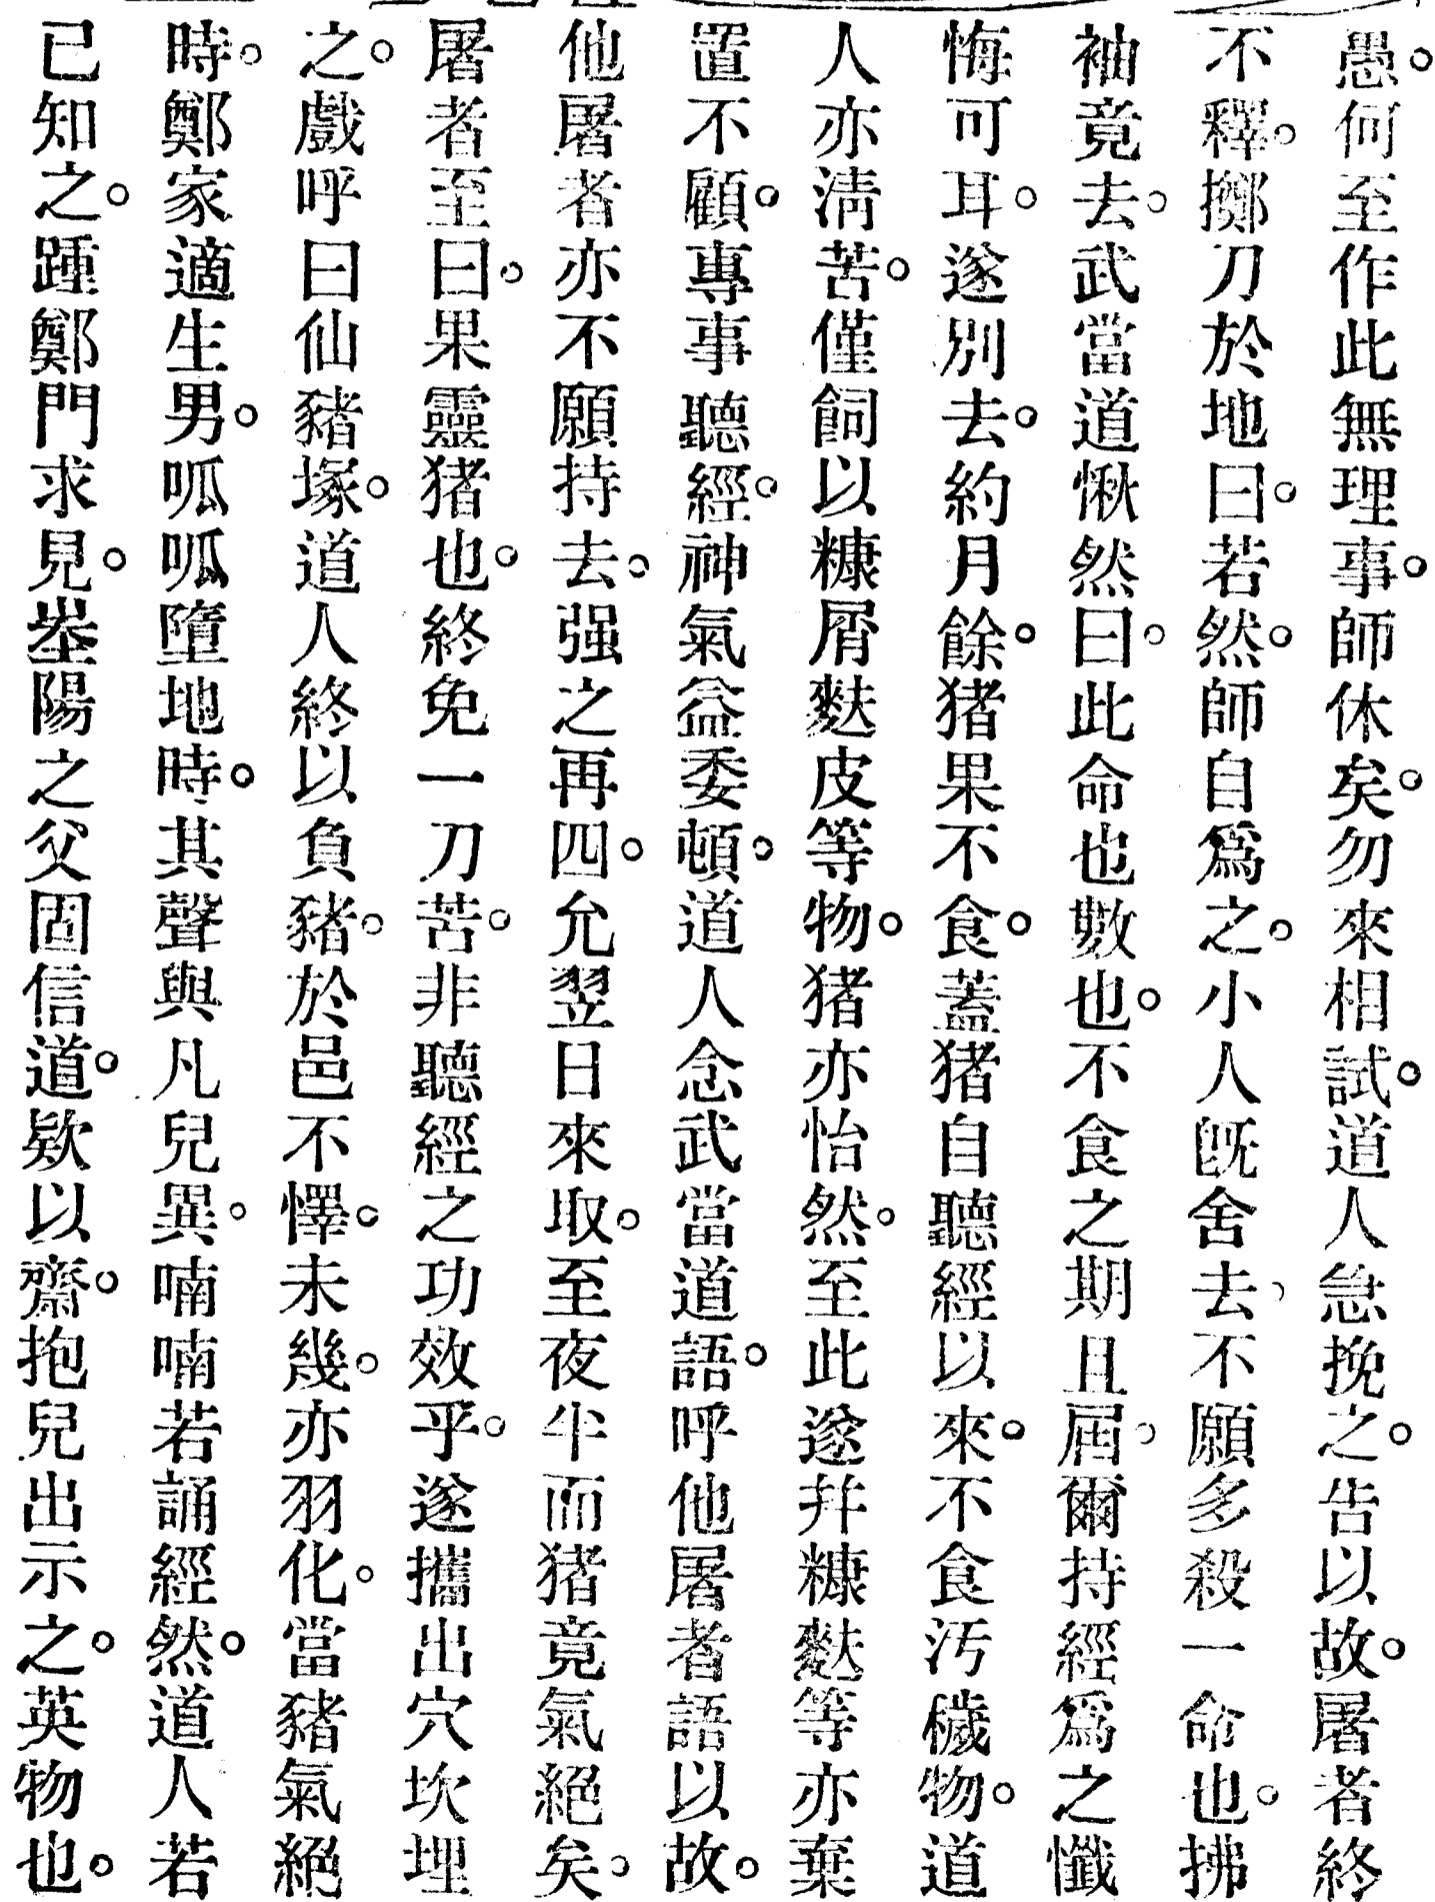 愚。何至作此無理事。師休矣。勿來相試。道人急挽之。告以故。屠者終
不釋。擲刀於地曰。若然。師自爲之。小人旣舍去、不願多殺一命也。拂
袖竟去。武當道愀然曰。此命也數也。不食之期且屆。爾持經爲之懺
悔可耳。遂別去。約月餘。猪果不食。蓋猪自聽經以來。不食汚穢物。道
人亦淸苦。僅飼以糠屑麩皮等物。猪亦怡然。至此遂幷糠麩等亦棄
置不顧。專事聽經。神氣益委頓。道人念武當道語。呼他屠者語以故。
他屠者亦不願持去。强之再四。允翌日來取。至夜半而猪竟氣絕矣。
屠者至曰。果靈猪也。終免一刀苦。非聽經之功效乎。遂攜出穴坎埋
之。戲呼曰仙豬塚。道人終以負豬。於邑不懌。未幾。亦羽化。當豬氣絕
時。鄭家適生男。呱呱墮地時。其聲與凡兒異。喃喃若誦經然。道人若
已知之。踵鄭門求見。峚陽之父固信道。欵以齋。抱兒出示之。英物也。